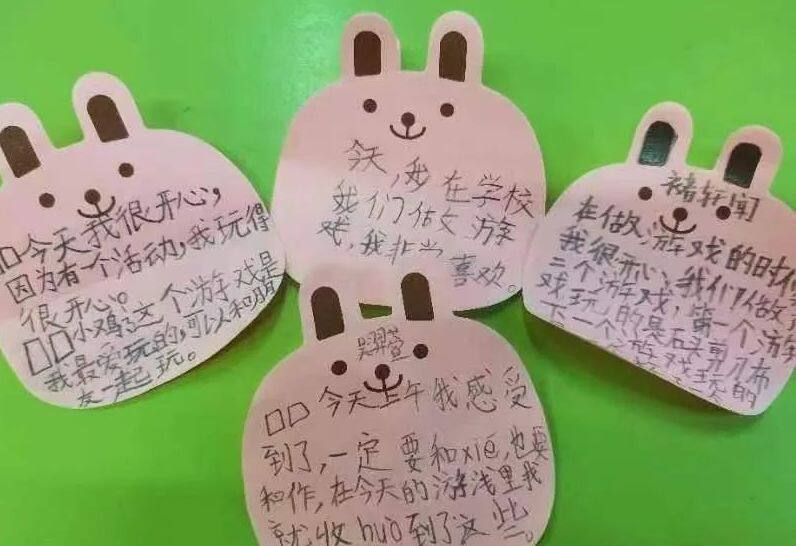 □□今天我很开心,
因为有一个活动,我玩得
很开心。
□□小鸡这个游戏是
我最爱玩的,可以和朋
友一起玩。
今天,我在学校
我们做文游
戏,我非当
喜欢。
褚轩闻
在做,游戏的时
我很开心,我们做
二个游戏,第一个游
戏玩的是石头剪刀布
下一个游戏玩的
□□今天上午我感受
到了,一定要和xié,也要
和作,在今天的游浅里我
就收huò到了这些。